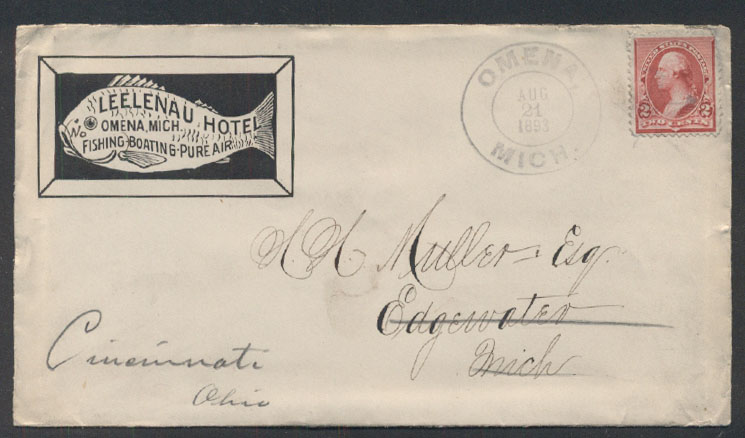 LEELENAU HOTEL
OMENA, MICH.
No
FISHING-BOATING-PURE AIR
OMENA,
AUG
21
1893
MICH.
UNITED STATES POSTAGE
2 2
TWO CENTS
Muller Esq.
Edgewater
Mich
Cincinnati
Ohio